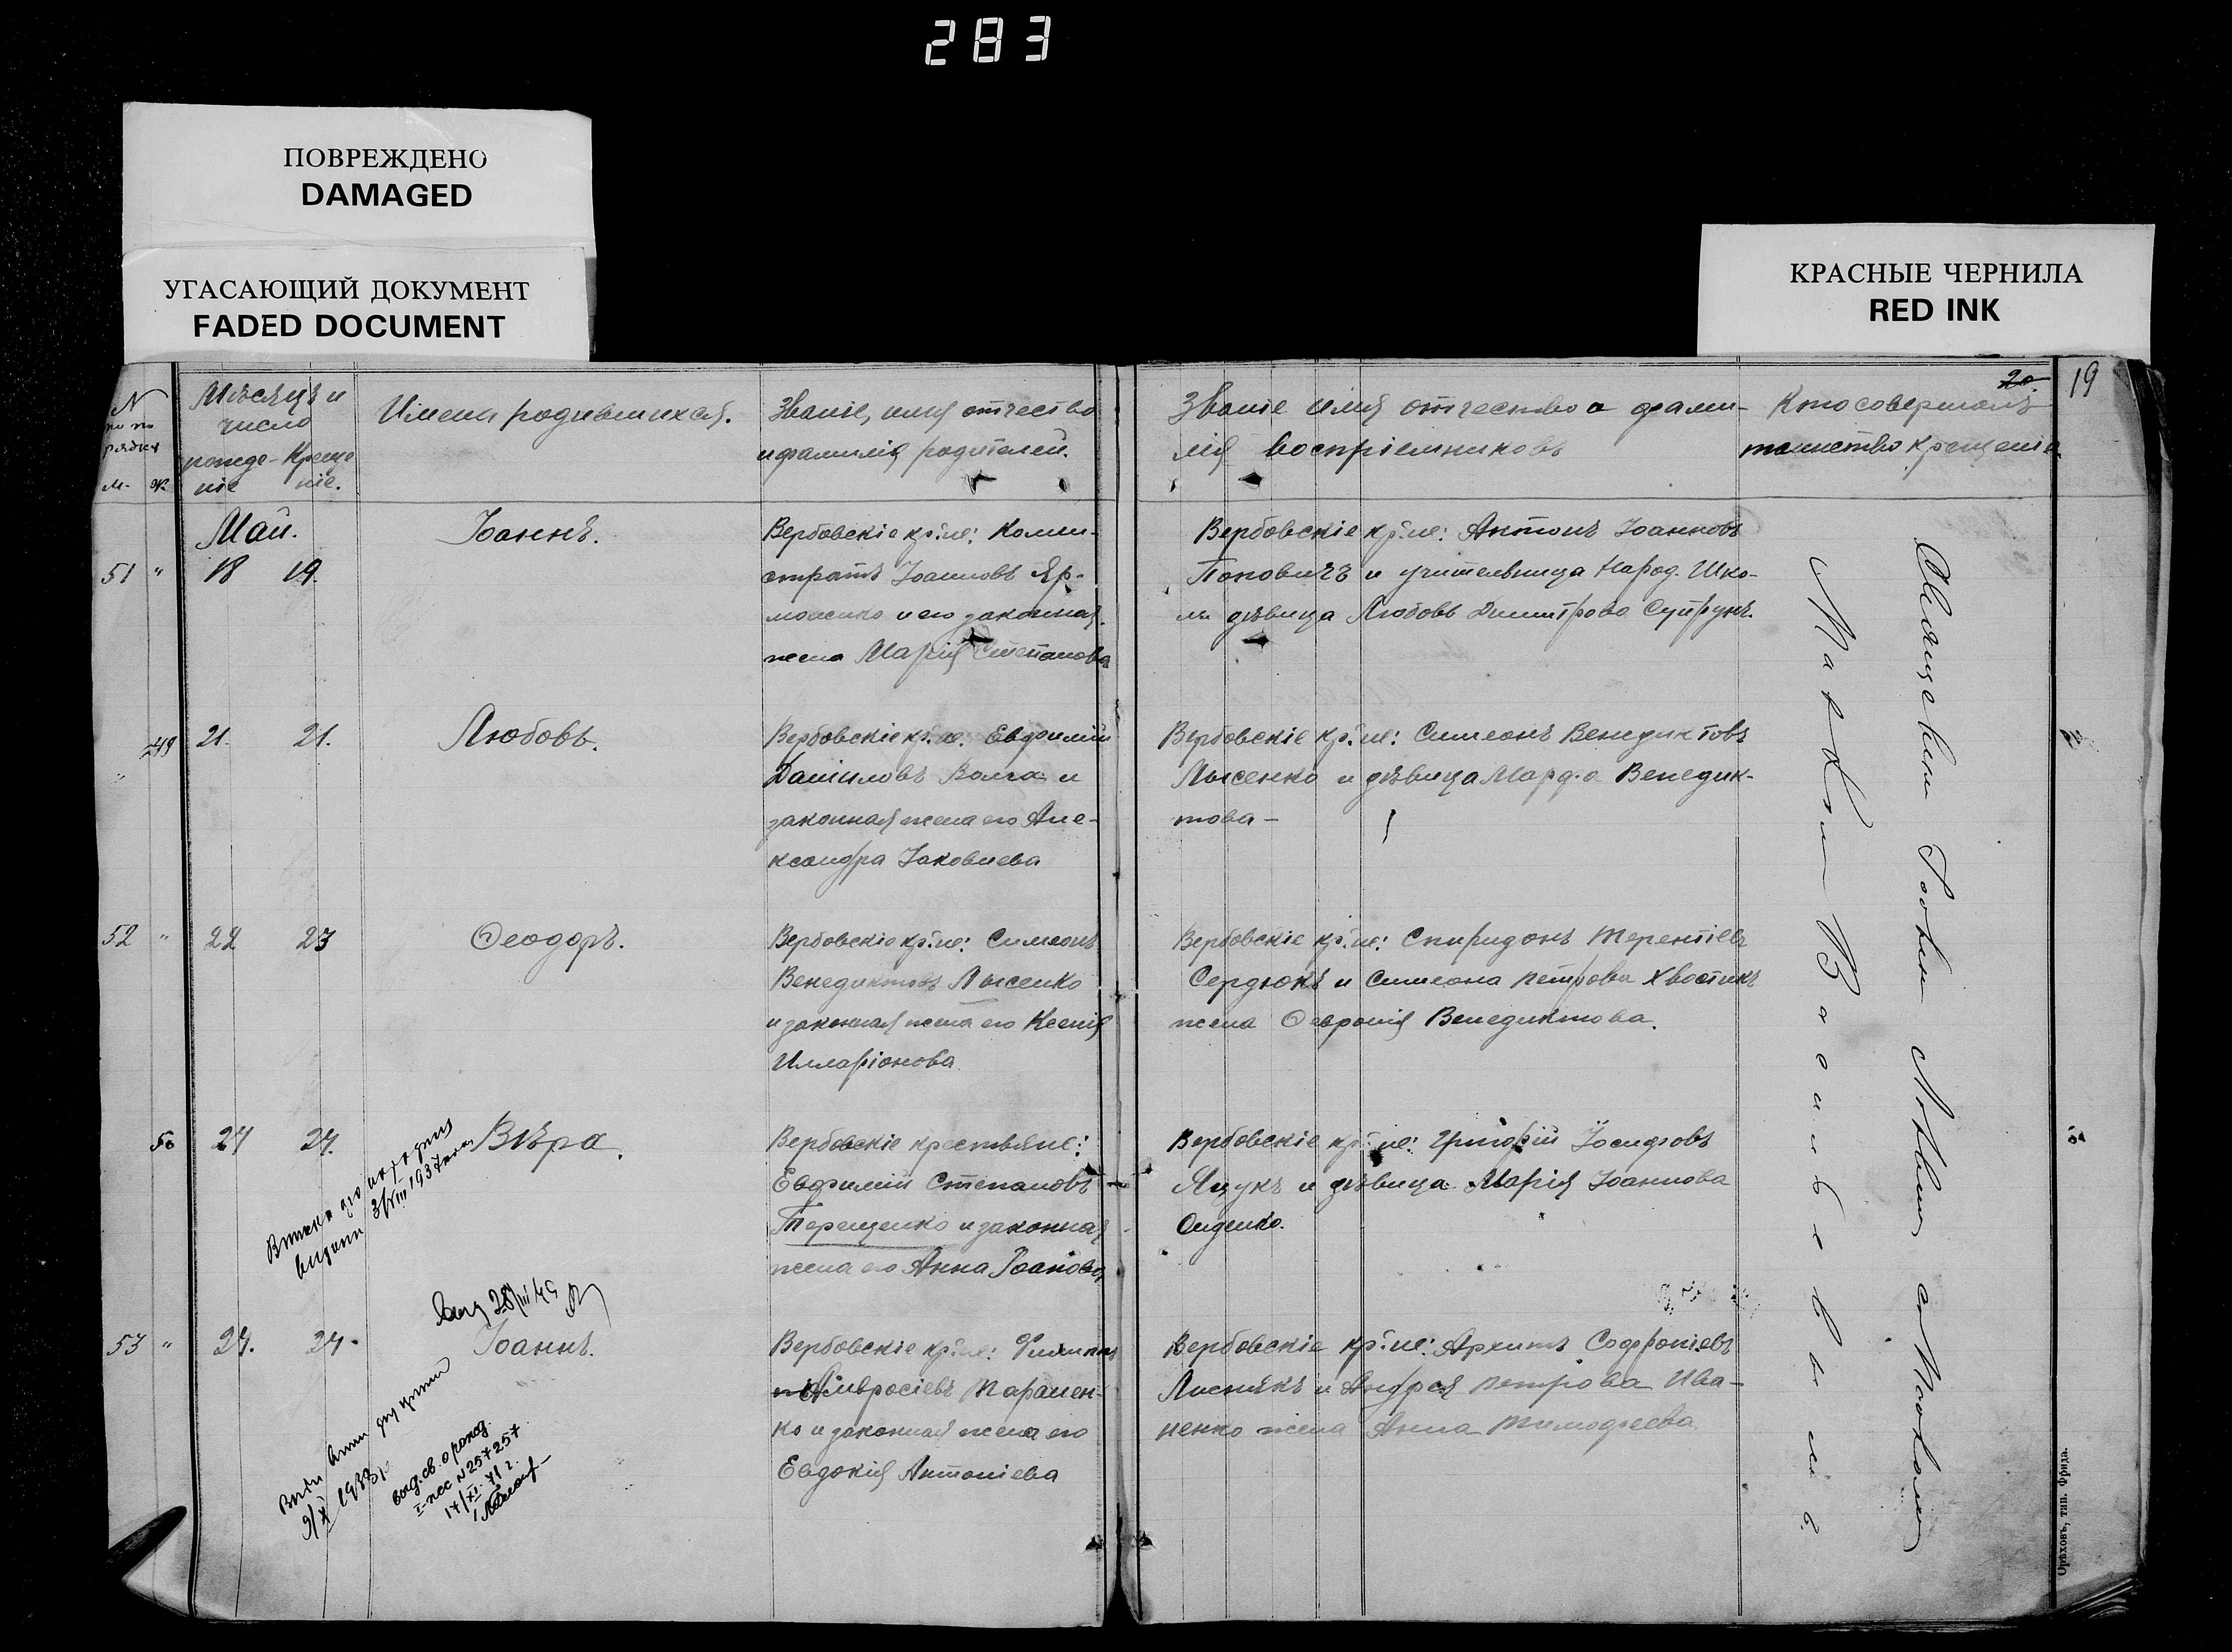 283
ПОВРЕЖДЕНО
DAMAGED
УГАСАЮЩИЙ ДОКУМЕНТ
FADED DOCUMENT
КРАСНЫЕ ЧЕРНИЛА
RED INK
20
19
N
по по
рядку
м. ж.
Мѣсяцъ и
число
рожде- Креще
ніе ніе.
Имена родившихся.
Званіе, имя отчество
и фамилія родителей.
Званіе имя отчество и фами-
лія воспріемниковъ
Кто совершалъ
таинство крещенія
Май.
51 " 18 19.
Іоаннъ.
Вербовскіе кр.не:
стратъ Іоанновъ Яр-
моленко и его законная
жена Марія Степанова
Вербовскіе кр.не: Антонъ Іоанновъ
Поповичъ и учительница Народ. Шко-
лы дѣвица Любовь Димитрова Супрунъ.
" 49 21. 21.
Любовь.
Вербовскіе кр.не: Евфимій
Даніиловъ и
законная жена его Але-
ксандра Іаковлева
Вербовскіе кр.не: Симеонъ Венедиктовъ
Лысенко и дѣвица Марфа Венедик-
това –
52 " 22 23
Ѳеодоръ.
Вербовскіе кр.не: Симеонъ
Венедиктовъ Лысенко
и законная жена его Ксенія
Илларіонова
Вербовскіе кр.не: Спиридонъ Терентіевъ
Сердюкъ и Симеона Петрова Хвостикъ
жена Ѳевронія Венедиктова.
50 24 24.
Вѣра.
Вербовскіе крестьяне:
Евфимій Степановъ
Терещенко и законная
жена его Анна Іоанова
Вербовскіе кр.не: Григорій Іосифовъ
Яцукъ и дѣвица Марія Іоаннова
видани 3/VIII 1937
53 " 24. 24.
Іоаннъ.
Вербовскіе кр.не: Филиппъ
Амвросіевъ Парамен-
ко и законная жена его
Евдокія Антоніева
Вербовскіе кр.не: Архипъ Софроніевъ
Лиснякъ и Андрея Петрова Ива-
ненко жена Анна Тимофеева
выд. св. о рожд.
I-ЖС N 257257
17/XI-71 г.
Священник
Орѣховъ, тип. Фрида.